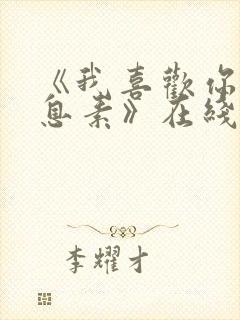 《我喜歡你
息素》在綫
李耀才